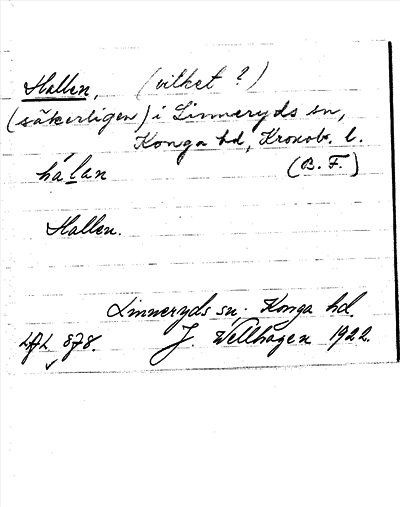 Hallen, (vilket?)
(säkerligen) i Linneryds sn,
Konga hd, Kronob. l.
(B. F.)
hálan
Hallen.
Linneryds sn. Konga hd.
J. Wellhagen 1922.
878.